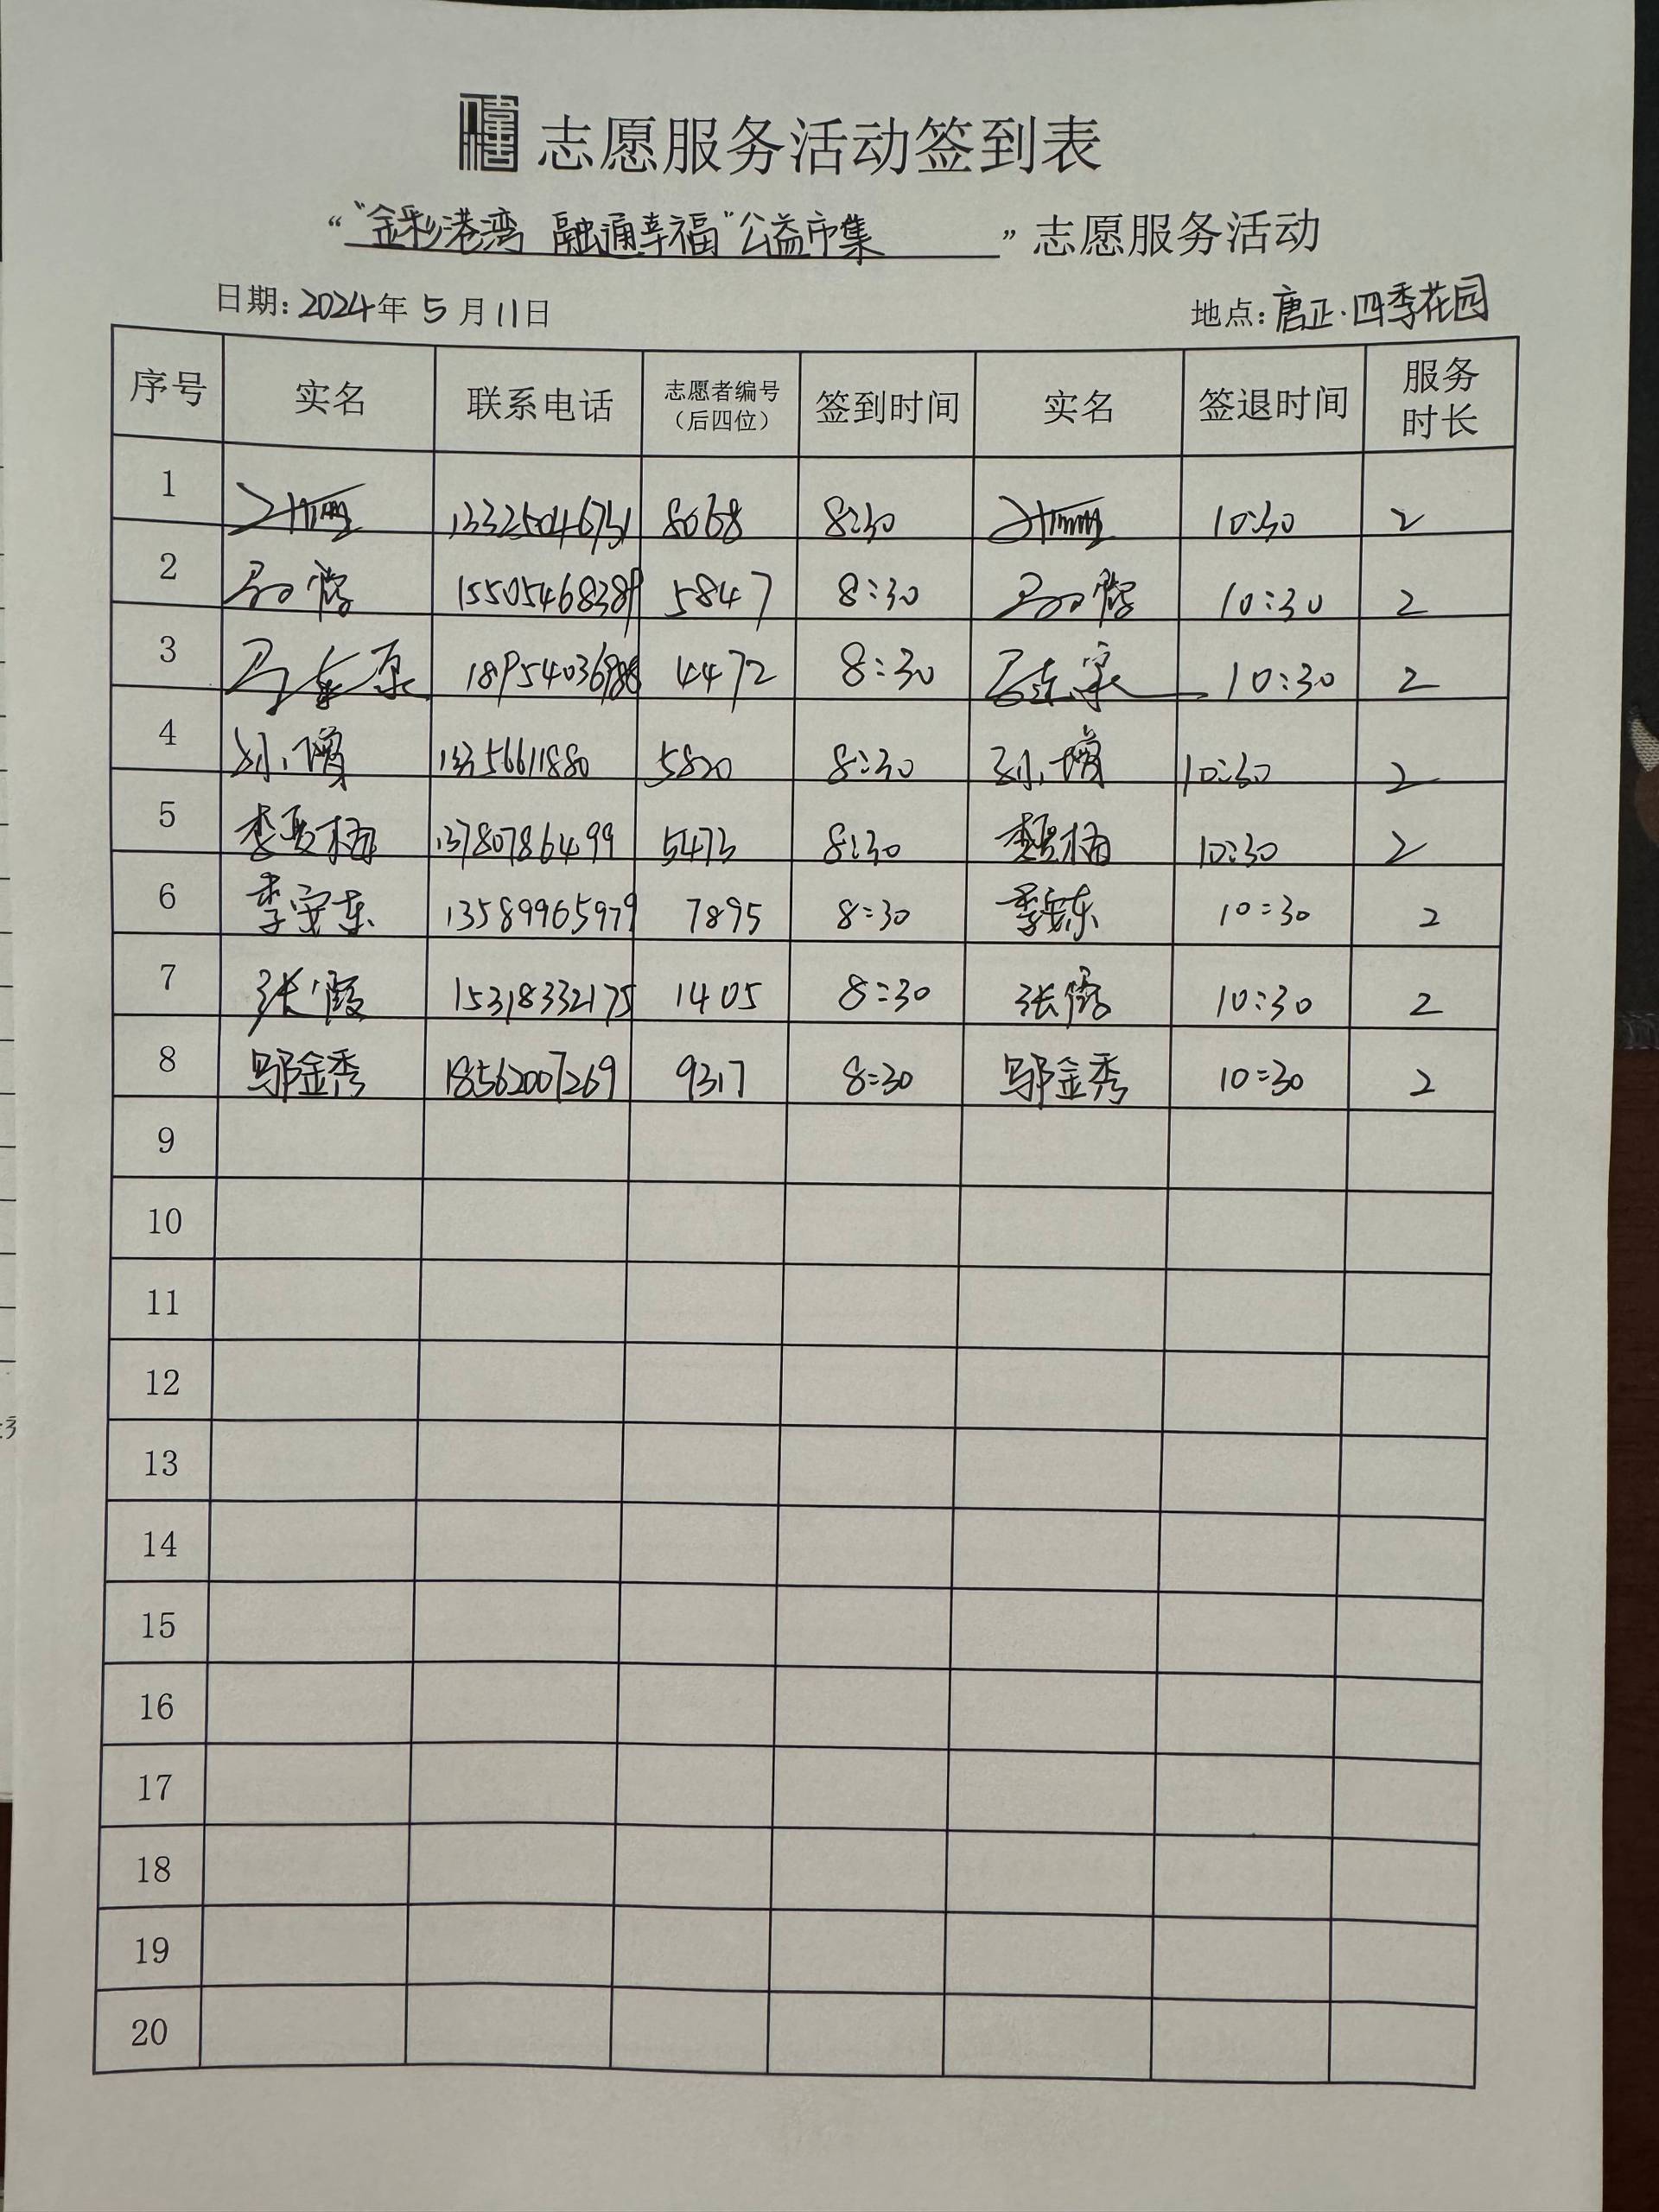 志愿服务活动签到表
“ “金彩港湾 融通幸福”公益市集 ” 志愿服务活动
日期: 2024年 5 月 11 日 地点: 唐正·四季花园
序号 实名 联系电话 志愿者编号（后四位） 签到时间 实名 签退时间 服务时长
1 13325046751 8068 8:30 10:30 2
2 5847 8:30 10:30 2
3 4472 8:30 10:30 2
4 5820 8:30 10:30 2
5 13780786499 5473 8:30 10:30 2
6 李安东 13589965979 7895 8:30 李安东 10:30 2
7 张霞 15318332175 1405 8:30 张霞 10:30 2
8 邬金秀 18562007269 9317 8:30 邬金秀 10:30 2
9
10
11
12
13
14
15
16
17
18
19
20